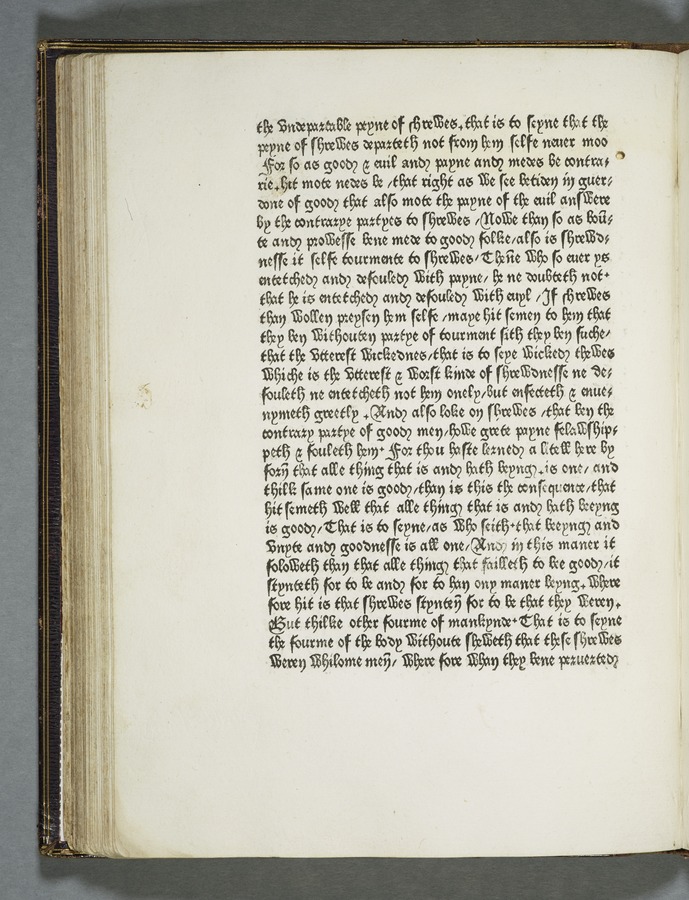 the vndepartable peyne of shrewes, that is to seyne that the
peyne of shrewes departeth not from hem selfe neuer moo
For so as good & euil and payne and medes be contra-
rie, hit mote nedes be /that right as we see betiden in guer-
done of good that also mote the payne of the euil answere
by the contrarye partyes to shrewes /Nowe than so as boū-
te and prowesse bene mede to good folke/also is shrewd-
nesse it selfe tourmente to shrewes/ Theñe who so euer ys
entetched and defouled with payne/ he ne doubteth not·
that he is entetched and defouled with euyl /If shrewes
than wollen preysen hem selfe /maye hit semen to hem that
they ben withouten partye of tourment sith they ben suche/
that the vtterest wickednes/that is to seye wicked thewes
whiche is the vtterest & worst kinde of shrewdnesse ne de-
fouleth ne entetcheth not hem onely/but enfecteth & enue-
nymeth greetly , And also loke on shrewes /that ben the
contrary partye of good men/howe grete payne felawship-
peth & fouleth hem· For thou haste lerned a litell here by
forñ that alle thing that is and hath beyng, is one/ and
thilk same one is good/than is this the consequence/that
hit semeth well that alle thing that is and hath beeyng
is good/That is to seyne/as who seith·that beeyng and
vnyte and goodnesse is all one/And in this maner it
foloweth than that alle thing that failleth to bee good/it
stynteth for to be and for to han ony maner beyng, where
fore hit is that shrewes stynteñ for to be that they weren,
But thilke other fourme of mankynde·That is to seyne
the fourme of the body withoute sheweth that these shrewes
weren whilome meñ/ where fore whan they bene peruerted